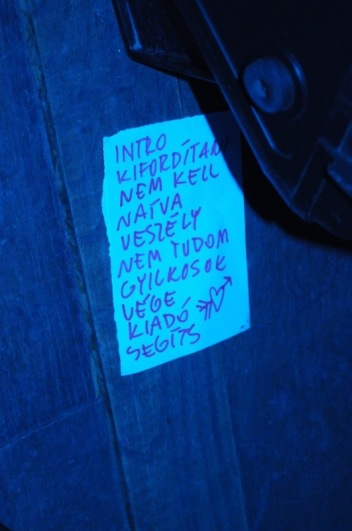 INTRO
KIFORDÍTANI
NEM KELL
NÁTVA
VESZÉLY
NEM TUDOM
GYILKOSOK
VÉGE
KIADÓ
SEGÍTS